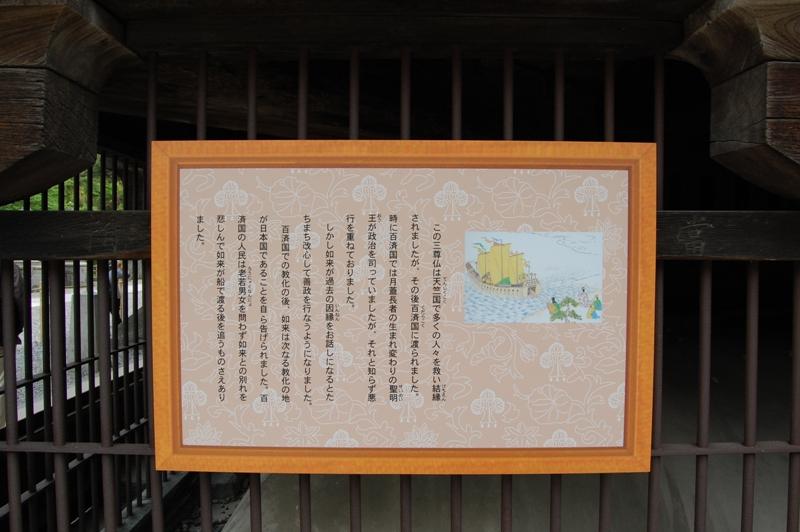 この三尊仏は天竺国で多くの人々を救い結縁
されましたが、その後百済国に渡られました。
時に百済国では月蓋長者の生まれ変わりの聖明
王が政治を司っていましたが、それと知らず悪
行を重ねておりました。
しかし如来が過去の因縁をお話しになるとた
ちまち改心して善政を行なうようになりました。
百済国での教化の後、如来は次なる教化の地
が日本国であることを自ら告げられました。百
済国の人民は老若男女を問わず如来との別れを
悲しんで如来が船で渡る後を追うものさえあり
ました。